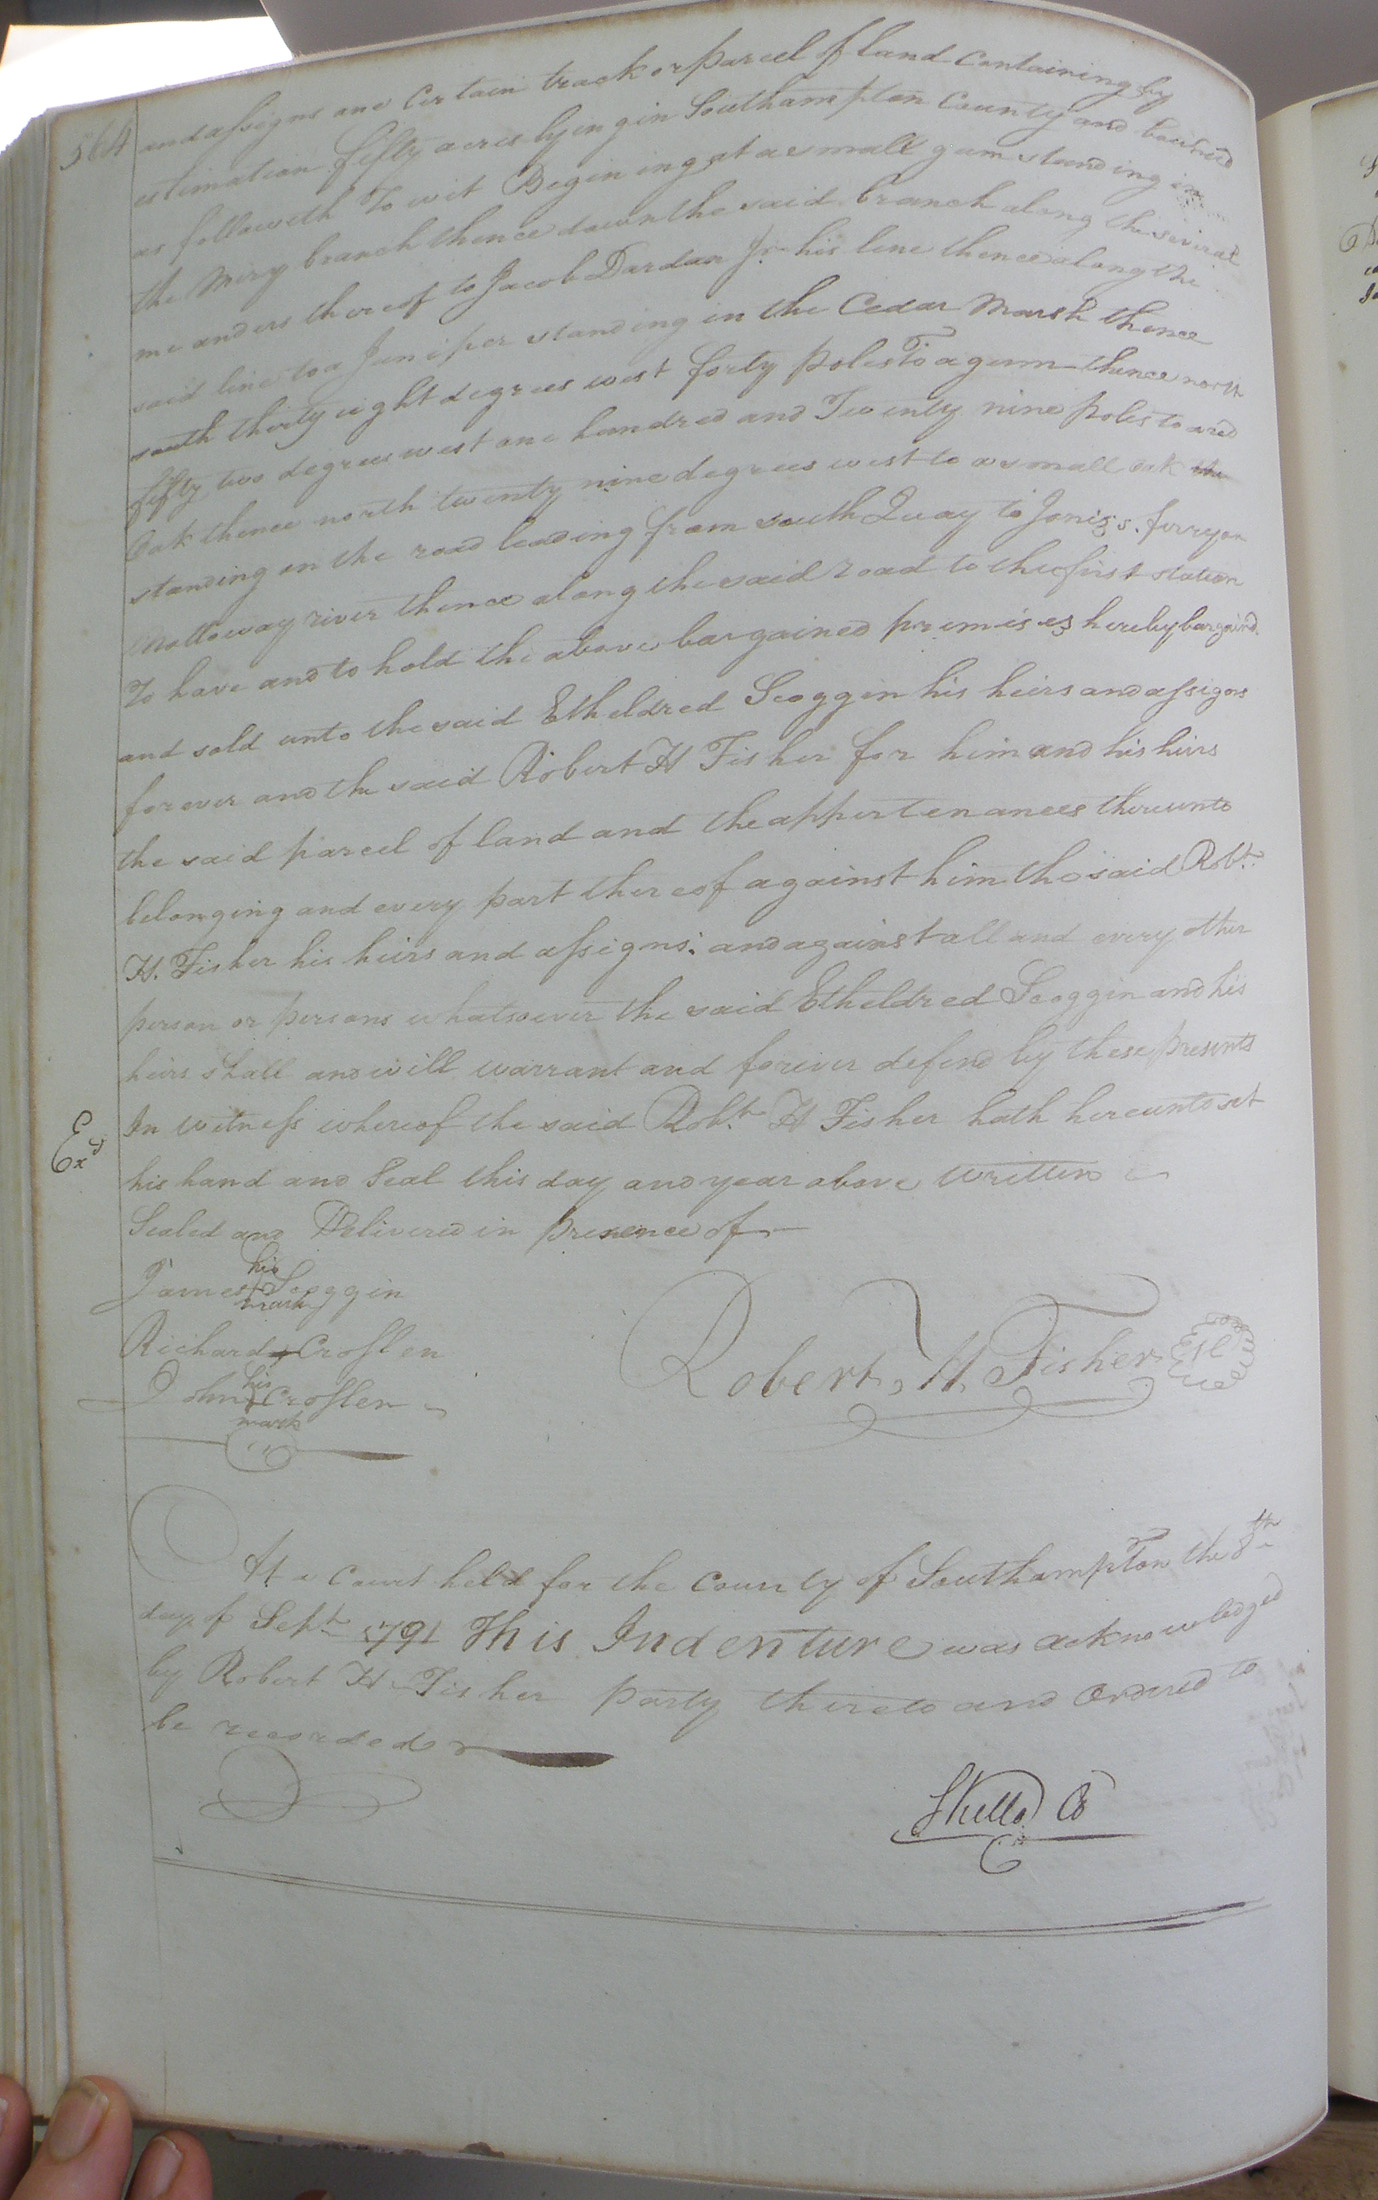 564
and assigns one Certain track or parcel of land Containing by
estimation fifty acres lying in Southampton County and bounded
as followeth To wit Begining at a small gum standing in
the Miry branch thence down the said branch along the several
meanders thereof to Jacob Dardan Jr his line thence along the
said line to a Juniper standing in the Cedar Marsh thence
south thirty eight degrees west forty poles To a gum thence north
fifty two degrees west one hundred and Twenty nine poles to a red
Oak thence north twenty nine degrees west to a small oak
standing on the road leading from South Quay to Jones's ferry on
Nottoway river thence along the said road to the first station
To have and to hold the above bargained premises hereby bargaind
and sold unto the said Etheldred Scoggin his heirs and assigns
forever and the said Robert H Fisher for him and his heirs
the said parcel of land and the appertenances thereunto
belonging and every part thereof against him the said Robt.
H. Fisher his heirs and assigns: and against all and every other
person or persons whatsoever the said Etheldred Scoggin and his
heirs shall and will warrant and forever defend by these presents
In witness whereof the said Robt. H Fisher hath hereunto set
Exd
his hand and Seal this day and year above written
Sealed and Delivered in presence of
James his mark Scoggin
Richard Croflen
John his mark Crofler
Robert, H, Fisher
At a Court held for the County of Southampton the 8th
day of Sept 1791 This Indenture was acknowledged
by Robert H Fisher party thereto and Ordered to
be recorded